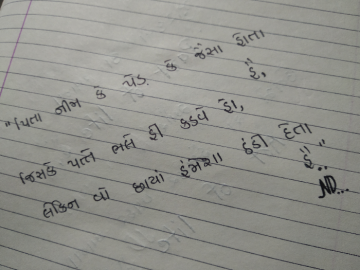 "પિતા નીમ કે પેડ કે જૈસા હોતા
હૈ,
જિસકે પત્તે ભલે હી કડવે હો,
લેકિન વો છાયા હંમેશા ઠંડી દેતા
હૈ.."
ND...